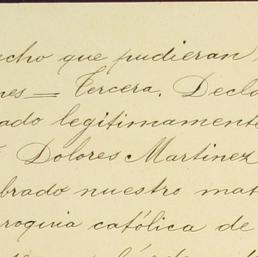 echo que pudieran
nes = Tercera. Decla
ado legitimamente
Dolores Martinez
brado nuestro mat
rroquia católica de